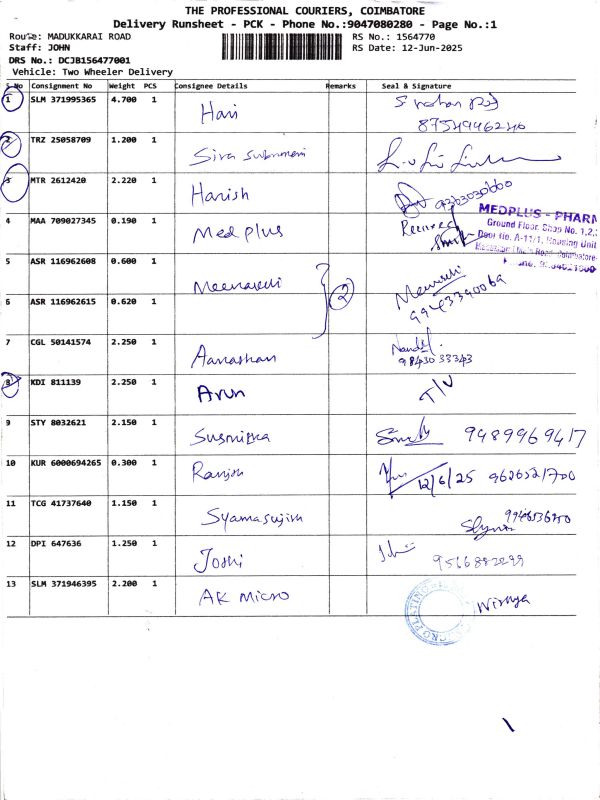 THE PROFESSIONAL COURIERS, COIMBATORE
Delivery Runsheet - PCK - Phone No.:9047080280 - Page No.:1
Route: MADUKKARAI ROAD RS No.: 1564770
Staff: JOHN RS Date: 12-Jun-2025
DRS No.: DCJB156477001
Vehicle: Two Wheeler Delivery
S No Consignment No Weight PCS Consignee Details Remarks Seal & Signature
1 SLM 371995365 4.700 1 Hari
2 TRZ 25058709 1.200 1 Siva
3 MTR 2612420 2.220 1 Harish
4 MAA 709027345 0.190 1 Med plus Received
MEDPLUS - PHARM
Ground Floor, Shop No. 1,2,
Door No. A-11/1, Housing Unit
5 ASR 116962608 0.600 1 Meenakshi 2
6 ASR 116962615 0.620 1
7 CGL 50141574 2.250 1 9843033343
8 KDI 811139 2.250 1 Arun
9 STY 8032621 2.150 1 Susmitha 9489969417
10 KUR 6000694265 0.300 1 Ranjith 12/6/25 9626521700
11 TCG 41737640 1.150 1 Syamasujith
12 DPI 647636 1.250 1 Joshi
13 SLM 371946395 2.200 1 AK Micro